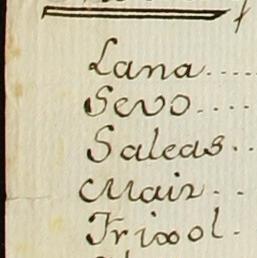 Lana....
Sevo....
Saleas..
Maiz..
Frixol.